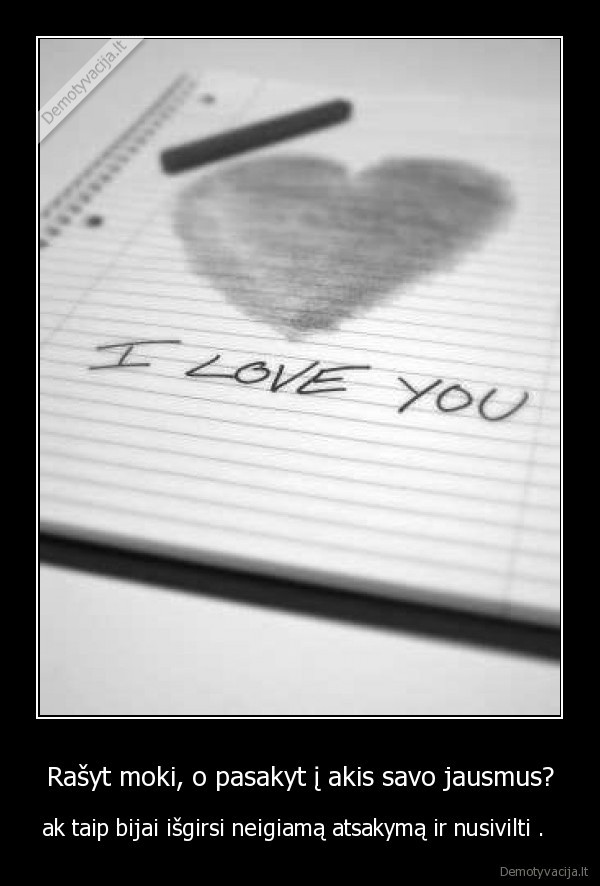 Demotyvacija.lt
I LOVE YOU
Rašyt moki, o pasakyt į akis savo jausmus?
ak taip bijai išgirsi neigiamą atsakymą ir nusivilti .
Demotyvacija.lt